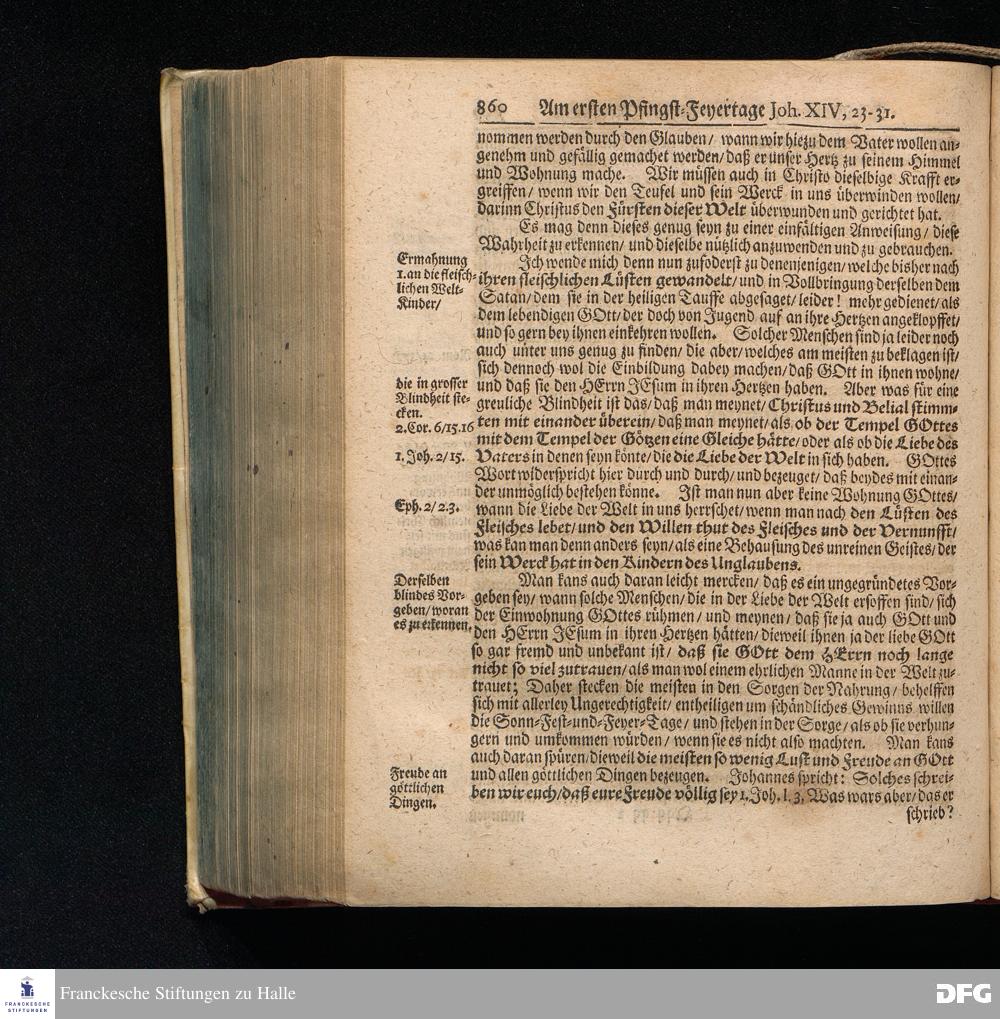 860 Am ersten Pfingst-Feyertage Joh. XIV, 23-31.
nommen werden durch den Glauben/ wann wir hiezu dem Vater wollen an-
genehm und gefällig gemachet werden/ daß er unser Hertz zu seinem Himmel
und Wohnung mache. Wir müssen auch in Christo dieselbige Krafft er-
greiffen/ wenn wir den Teufel und sein Werck in uns überwinden wollen/
darinn Christus den Fürsten dieser Welt überwunden und gerichtet hat.
Es mag denn dieses genug seyn zu einer einfältigen Anweisung/ diese
Wahrheit zu erkennen/ und dieselbe nützlich anzuwenden und zu gebrauchen.
Ermahnung
1. an die fleisch-
lichen Welt-
Kinder/
Ich wende mich denn nun zufoderst zu denenjenigen/ welche bisher nach
ihren fleischlichen Lüsten gewandelt/ und in Vollbringung derselben dem
Satan/ dem sie in der heiligen Tauffe abgesaget/ leider! mehr gedienet/ als
dem lebendigen GOtt/ der doch von Jugend auf an ihre Hertzen angeklopffet/
und so gern bey ihnen einkehren wollen. Solcher Menschen sind ja leider noch
auch unter uns genug zu finden/ die aber/ welches am meisten zu beklagen ist/
sich dennoch wol die Einbildung dabey machen/ daß GOtt in ihnen wohne/
und daß sie den HErrn JEsum in ihren Hertzen haben. Aber was für eine
greuliche Blindheit ist das/ daß man meynet/ Christus und Belial stimm-
ten mit einander überein/ daß man meynet/ als ob der Tempel GOttes
mit dem Tempel der Götzen eine Gleiche hätte/ oder als ob die Liebe des
Vaters in denen seyn könte/ die die Liebe der Welt in sich haben. GOttes
Wort widerspricht hier durch und durch/ und bezeuget/ daß beydes mit einan-
der unmöglich bestehen könne. Ist man nun aber keine Wohnung GOttes/
wann die Liebe der Welt in uns herrschet/ wenn man nach den Lüsten des
Fleisches lebet/ und den Willen thut des Fleisches und der Vernunfft/
was kan man denn anders seyn/ als eine Behausung des unreinen Geistes/ der
sein Werck hat in den Kindern des Unglaubens.
die in grosser
Blindheit ste-
cken.
2. Cor. 6/15.16
1. Joh. 2/15.
Eph. 2/2.3.
Derselben
blindes Vor-
geben/ woran
es zu erkennen.
Man kans auch daran leicht mercken/ daß es ein ungegründetes Vor-
geben sey/ wann solche Menschen/ die in der Liebe der Welt ersoffen sind/ sich
der Einwohnung GOttes rühmen/ und meynen/ daß sie ja auch GOtt und
den HErrn JEsum in ihren Hertzen hätten/ dieweil ihnen ja der liebe GOtt
so gar fremd und unbekant ist/ daß sie GOtt dem HErrn noch lange
nicht so viel zutrauen/ als man wol einem ehrlichen Manne in der Welt zu-
trauet; Daher stecken die meisten in den Sorgen der Nahrung/ behelffen
sich mit allerley Ungerechtigkeit/ entheiligen um schändliches Gewinns willen
die Sonn-Fest-und-Feyer-Tage/ und stehen in der Sorge/ als ob sie verhun-
gern und umkommen würden/ wenn sie es nicht also machten. Man kans
auch daran spüren/ dieweil die meisten so wenig Lust und Freude an GOtt
und allen göttlichen Dingen bezeugen. Johannes spricht: Solches schrei-
ben wir euch/ daß eure Freude völlig sey 1. Joh. I. 3, Was wars aber/ das er
schrieb?
Freude an
göttlichen
Dingen.
FRANCKESCHE
STIFTUNGEN
Franckesche Stiftungen zu Halle
DFG